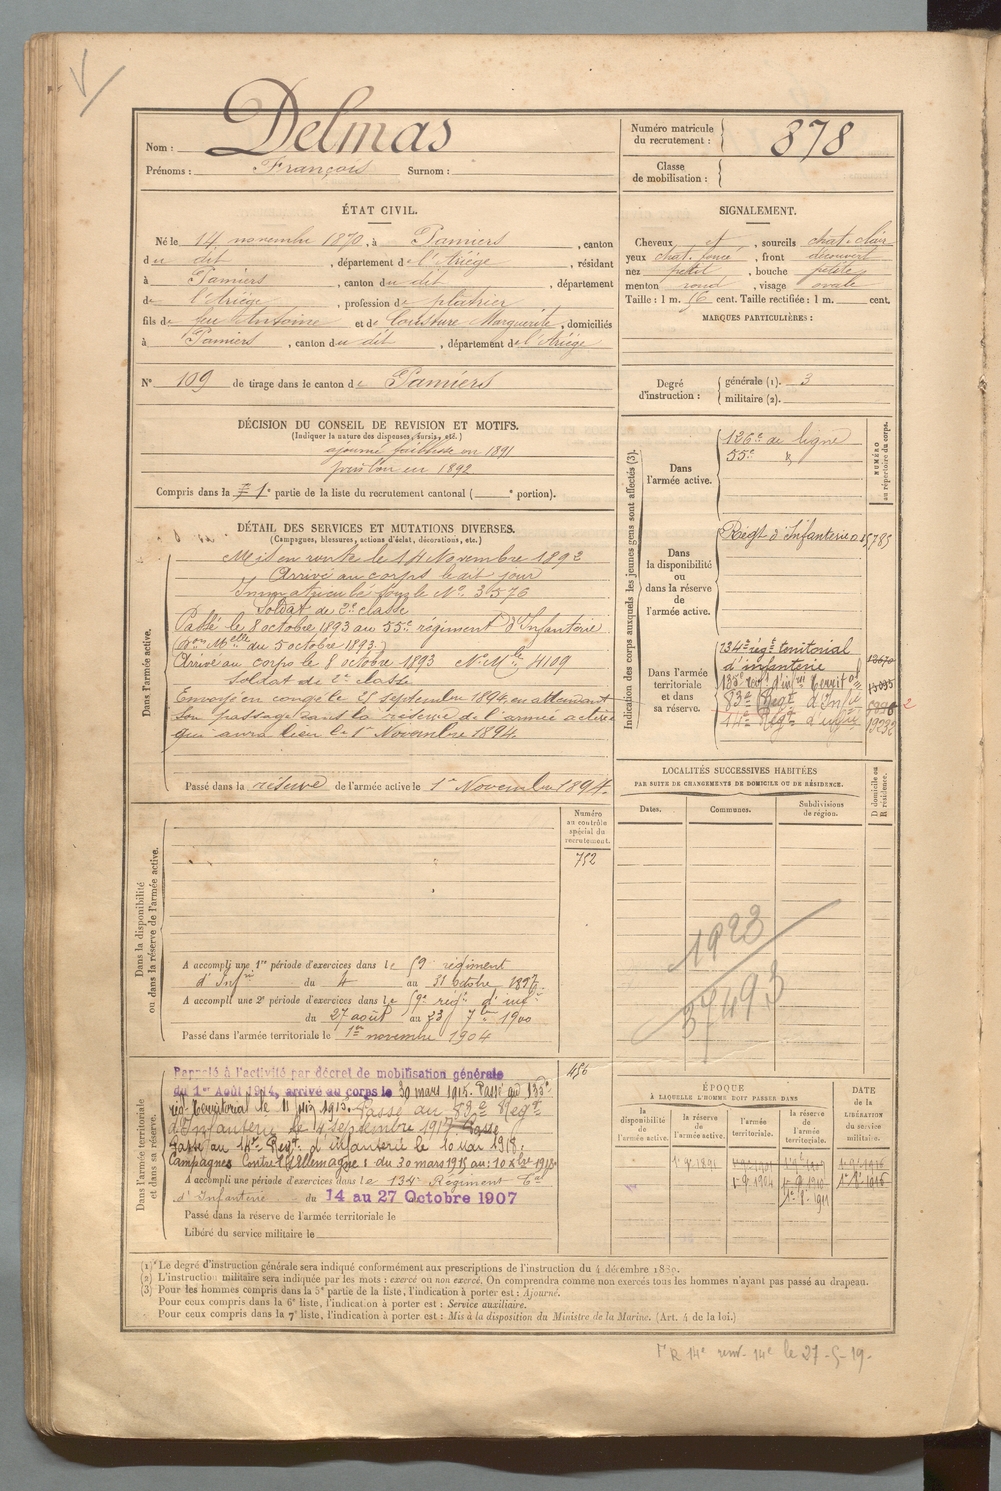 Nom : Delmas
Prénoms : François Surnom :
Numéro matricule du recrutement : 878
Classe de mobilisation :
ÉTAT CIVIL.
Né le 14 novembre 1870, à Pamiers, canton
du dit, département de l'Ariège, résidant
à Pamiers, canton du dit, département
de l'Ariège, profession de plâtrier
fils de feu Antoine et de Marguerite, domiciliés
à Pamiers, canton du dit, département de l'Ariège
SIGNALEMENT.
Cheveux et, sourcils chat. clair
yeux chat. foncé, front découvert
nez petit, bouche petite
menton rond, visage ovale
Taille : 1 m. 56 cent. Taille rectifiée : 1 m. cent.
MARQUES PARTICULIÈRES :
N° 109 de tirage dans le canton de Pamiers
Degré d'instruction : générale (1). 3
militaire (2).
DÉCISION DU CONSEIL DE REVISION ET MOTIFS.
(Indiquer la nature des dispenses, sursis, etc.)
ajourné faiblesse en 1891
en 1892
Compris dans la 1e partie de la liste du recrutement cantonal ( e portion).
DÉTAIL DES SERVICES ET MUTATIONS DIVERSES.
(Campagnes, blessures, actions d'éclat, décorations, etc.)
Dans l'armée active.
Mis en route le 14 Novembre 1892
Arrivé au corps le dit jour
Immatriculé sous le N° 3576
Soldat de 2e classe
Passé le 8 octobre 1893 au 55e régiment d'Infanterie
(Don Melle du 5 octobre 1893.)
Arrivé au corps le 8 octobre 1893 N° Mle 4109
Soldat de 2e classe
Envoyé en congé le 25 septembre 1894, en attendant
son passage dans la réserve de l'armée active
qui aura lieu le 1er Novembre 1894.
Passé dans la réserve de l'armée active le 1er Novembre 1894.
Indication des corps auxquels les jeunes gens sont affectés (3).
NUMÉRO au répertoire du corps.
Dans l'armée active.
126e de ligne
55e
Dans la disponibilité ou dans la réserve de l'armée active.
Régt d'Infanterie
Dans l'armée territoriale et dans sa réserve.
134e régt territorial
d'infanterie
135e régt d'infrie territal
83e Régt d'Infie
14e Régt d'infrie
LOCALITÉS SUCCESSIVES HABITÉES
PAR SUITE DE CHANGEMENTS DE DOMICILE OU DE RÉSIDENCE.
Dates. Communes. Subdivisions de région. D domicile ou R résidence.
1923
37493
Dans la disponibilité ou dans la réserve de l'armée active.
Numéro au contrôle spécial du recrutement.
752
A accompli une 1re période d'exercices dans le 59e régiment
d'Infrie du 4 au 31 octobre 1897
A accompli une 2e période d'exercices dans le 59e régt d'infie
du 27 août au 23 7bre 1900
Passé dans l'armée territoriale le 1er novembre 1904
Dans l'armée territoriale et dans sa réserve.
456
Rappelé à l'activité par décret de mobilisation générale
du 1er Août 1914, arrivé au corps le 30 mars 1915. Passé au 135e
régt territorial le 11 juin 1915. Passé au 83e Régt
d'Infanterie le 4 septembre 1917. Passé
Passé au 14e Regt d'infanterie le 10 mai 1918.
Campagnes Contre l'Allemagne : du 30 mars 1915 au 10 xbre 1918
A accompli une période d'exercices dans le 134e Régiment Tal
d'Infanterie du 14 au 27 Octobre 1907
Passé dans la réserve de l'armée territoriale le
Libéré du service militaire le
ÉPOQUE
À LAQUELLE L'HOMME DOIT PASSER DANS
la disponibilité de l'armée active. la réserve de l'armée active. l'armée territoriale. la réserve de l'armée territoriale.
DATE de la LIBÉRATION du service militaire.
(1) Le degré d'instruction générale sera indiqué conformément aux prescriptions de l'instruction du 4 décembre 1889.
(2) L'instruction militaire sera indiquée par les mots : exercé ou non exercé. On comprendra comme non exercés tous les hommes n'ayant pas passé au drapeau.
(3) Pour les hommes compris dans la 5e partie de la liste, l'indication à porter est : Ajourné.
Pour ceux compris dans la 6e liste, l'indication à porter est : Service auxiliaire.
Pour ceux compris dans la 7e liste, l'indication à porter est : Mis à la disposition du Ministre de la Marine. (Art. 4 de la loi.)
14e le 27-5-19.